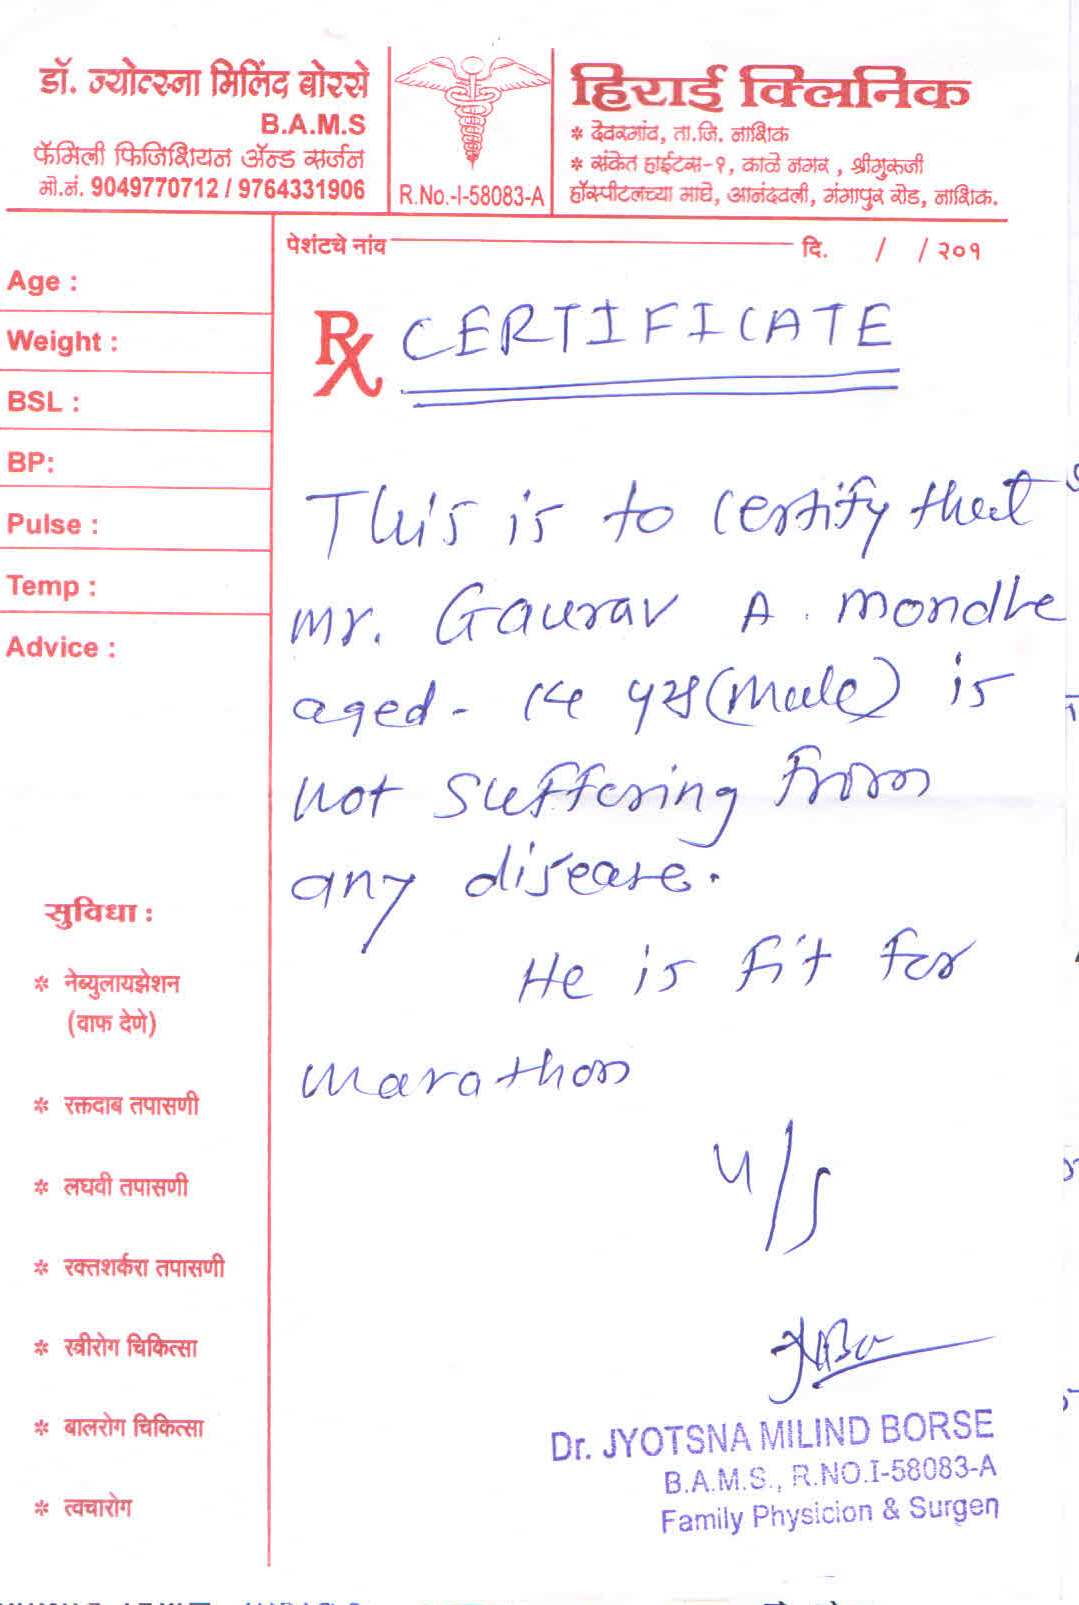 डॉ. ज्योत्स्ना मिलिंद बोरसे
B.A.M.S
फॅमिली फिजिशियन ॲन्ड सर्जन
मो.नं. 9049770712 / 9764331906
R.No.-I-58083-A
हिराई क्लिनिक
* देवरगांव, ता.जि. नाशिक
* संकेत हाईटस-१, काळे नगर , श्रीगुरुजी
हॉस्पीटलच्या मागे, आनंदवली, गंगापुर रोड, नाशिक.
पेशंटचे नांव दि. / / २०१
Age :
Weight :
BSL :
BP:
Pulse :
Temp :
Advice :
सुविधा :
* नेब्युलायझेशन
(वाफ देणे)
* रक्तदाब तपासणी
* लघवी तपासणी
* रक्तशर्करा तपासणी
* स्त्रीरोग चिकित्सा
* बालरोग चिकित्सा
* त्वचारोग
Rx CERTIFICATE
This is to certify that
Mr. Gaurav A. Mondhe
aged - 14 yrs (Male) is
not suffering from
any disease.
He is fit for
Marathon
Dr. JYOTSNA MILIND BORSE
B.A.M.S., R.NO.I-58083-A
Family Physicion & Surgen